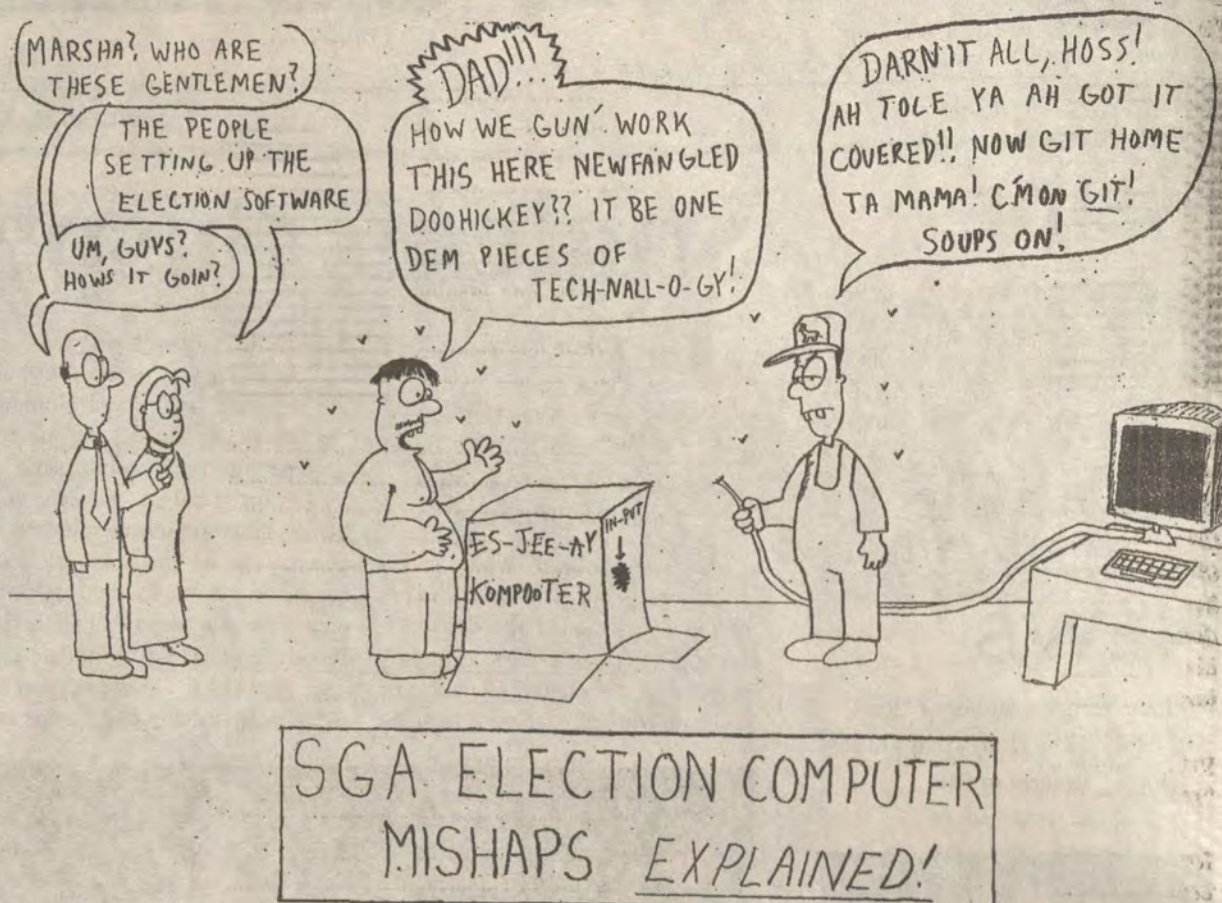 MARSHA? WHO ARE
THESE GENTLEMEN?
THE PEOPLE
SETTING UP THE
ELECTION SOFTWARE
UM, GUYS?
HOWS IT GOIN?
DAD!!!
HOW WE GUN' WORK
THIS HERE NEWFANGLED
DOOHICKEY?? IT BE ONE
DEM PIECES OF
TECH-NALL-O-GY!
DARN IT ALL, HOSS!
AH TOLE YA AH GOT IT
COVERED!! NOW GIT HOME
TA MAMA! C'MON GIT!
SOUPS ON!
ES-JEE-AY
KOMPOOTER
IN-PUT
SGA ELECTION COMPUTER
MISHAPS EXPLAINED!